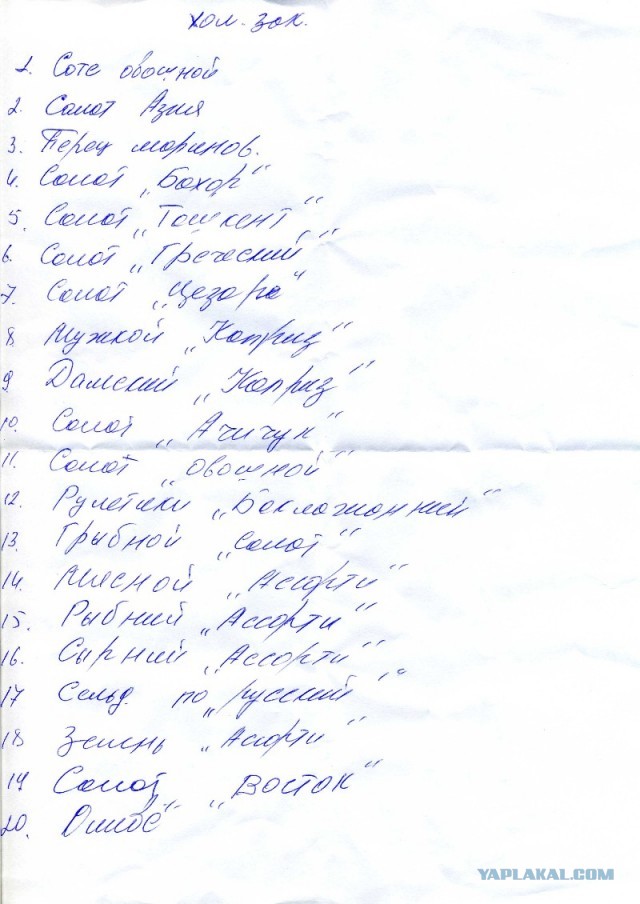 хол. зак.
1. Соте овошной
2. Салат Азия
3. Перец маринов.
4. Салат „Бахор“
5. Салат „Ташкент“
6. Салат „Греческий“
7. Салат „Цезарь“
8 Мужкой „Каприз“
9 Дамский „Каприз“
10. Салат „Ачичук“
11. Салат „овошной“
12. Рулетики „Баклажанний“
13. Грыбной „Салат“
14. Мясной „Ассорти“
15. Рыбний „Ассорти“
16. Сырний „Ассорти“
17 Сельд. по „русский“
18 Зелень „Асорти“
19 Салат „Восток“
20.
YAPLAKAL.COM